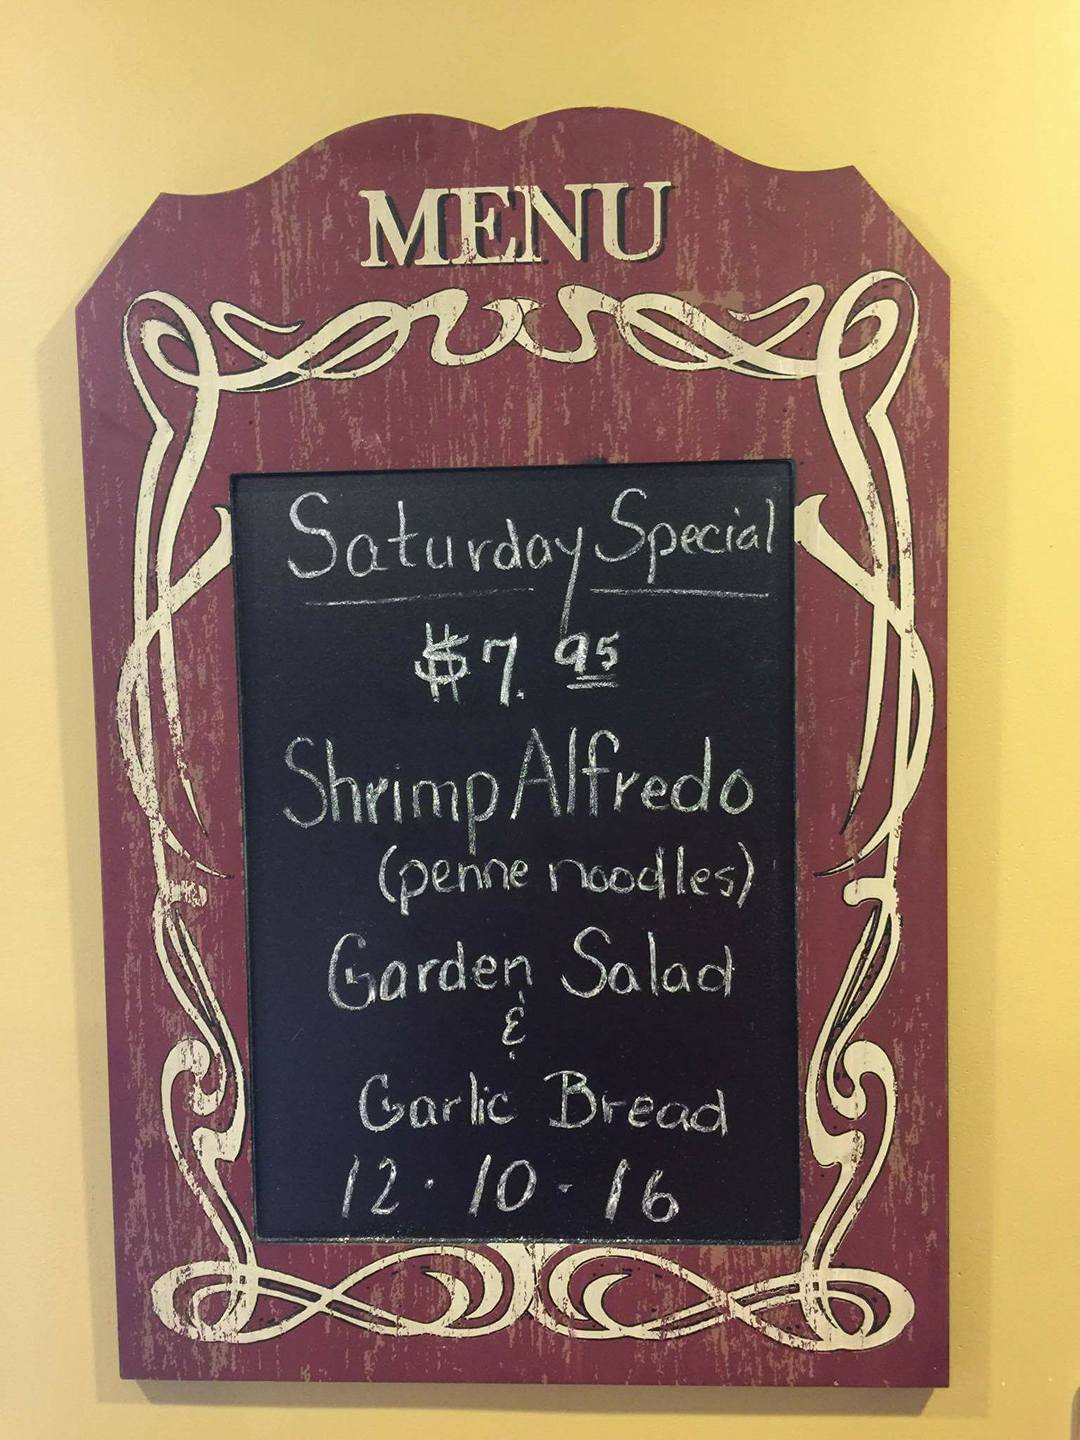 MENU
Saturday Special
$7.95
Shrimp Alfredo
(penne noodles)
Garden Salad
&
Garlic Bread
12.10.16